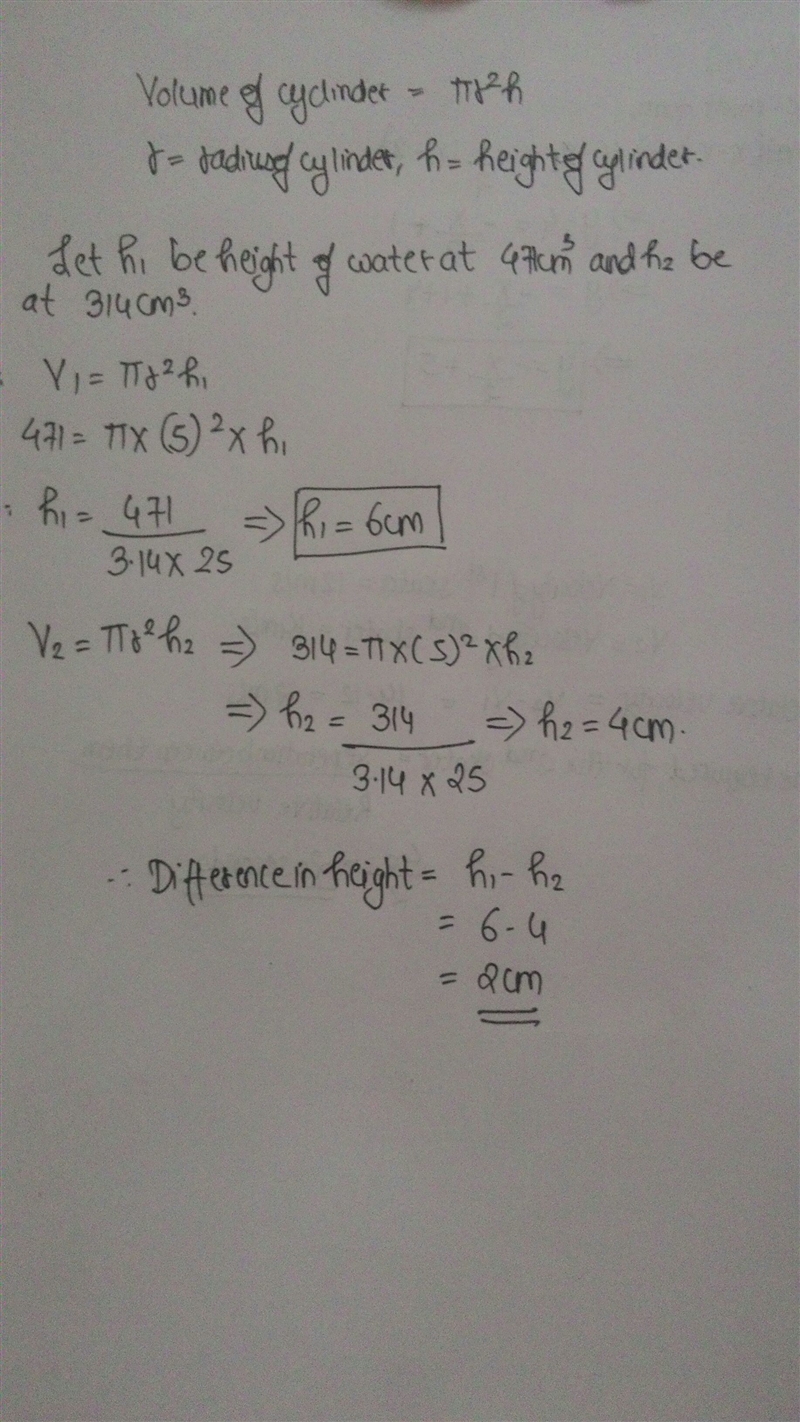 Volume of cyclinder = πr²h
r = radius of cylinder, h = height of cylinder.
Let h₁ be height of water at 471cm³ and h₂ be
at 314cm³.
V₁ = πr²h₁
471 = π × (5)² × h₁
∴ h₁ = 471 / 3.14 × 25 ⇒ h₁ = 6cm
V₂ = πr²h₂ ⇒ 314 = π × (5)² × h₂
⇒ h₂ = 314 / 3.14 × 25 ⇒ h₂ = 4cm.
∴ Difference in height = h₁ - h₂
= 6 - 4
= 2cm